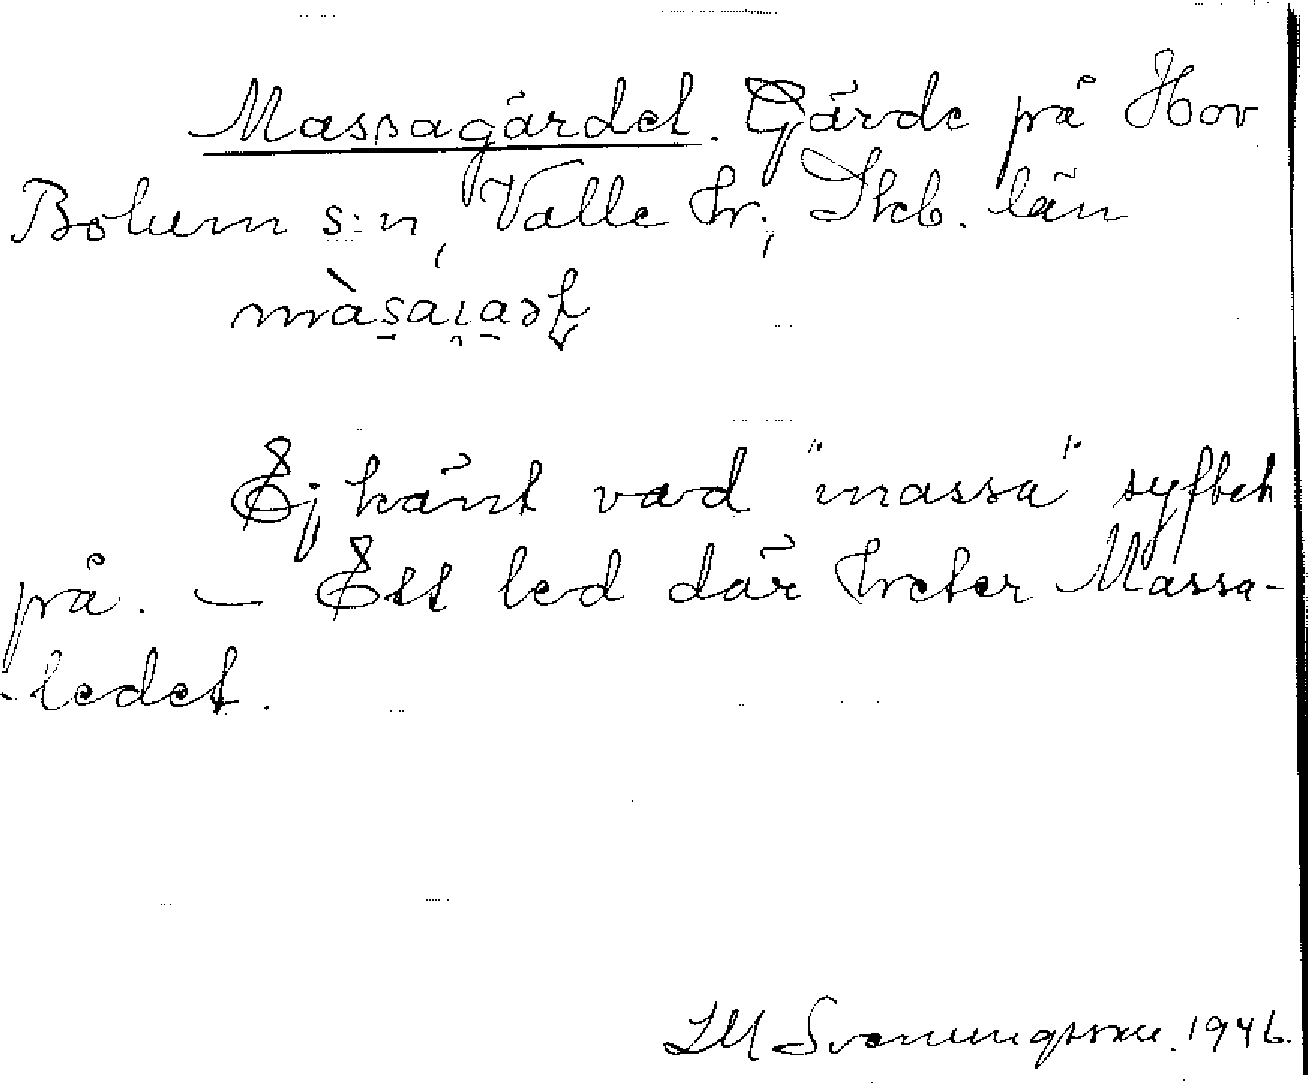 Massagärdet. Gärde på Hov
Bolum s:n, Valle hr; Skb. län
Ej känt vad "massa" syftat
på. — Ett led där heter Massa-
-ledet.
LM Svenungsson. 1946.